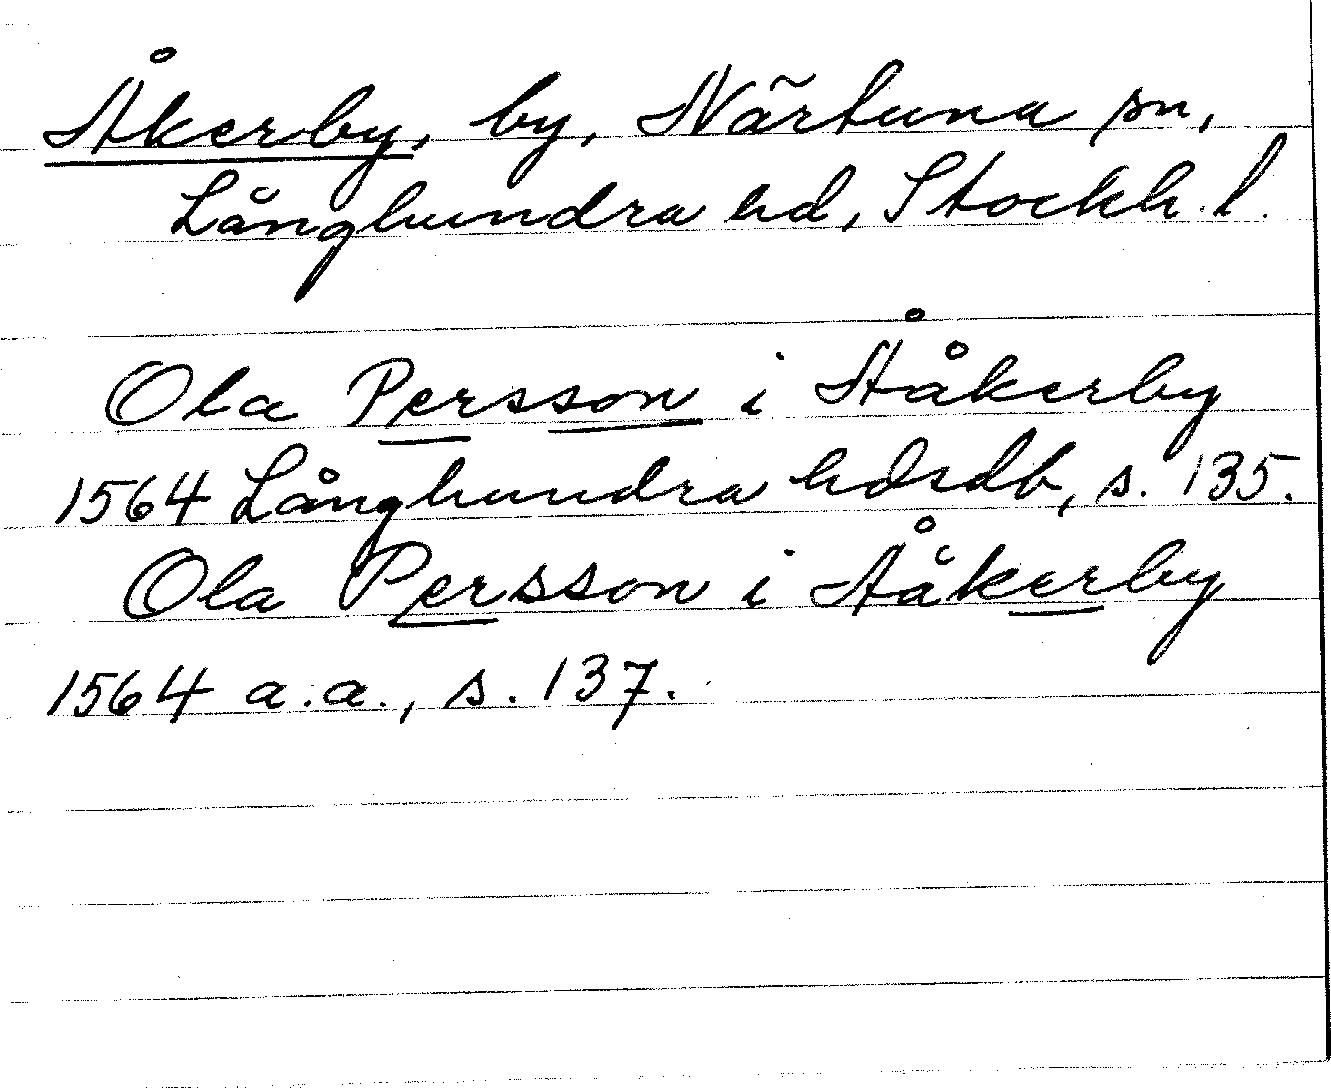 Åkerby, by, Närtuna sn,
Långhundra hd, Stockh. l.
Ola Persson i Ååkerby
1564 Långhundra hdsdb, s. 135.
Ola Persson i Ååkerby
1564 a.a., s. 137.